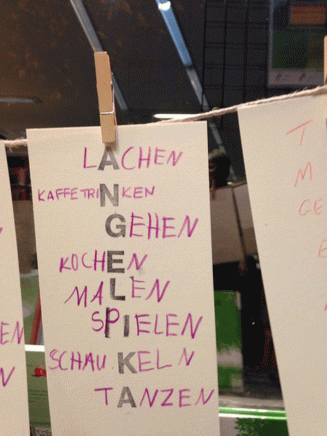 LACHEN
KAFFETRINKEN
GEHEN
KOCHEN
MALEN
SPIELEN
SCHAUKELN
TANZEN